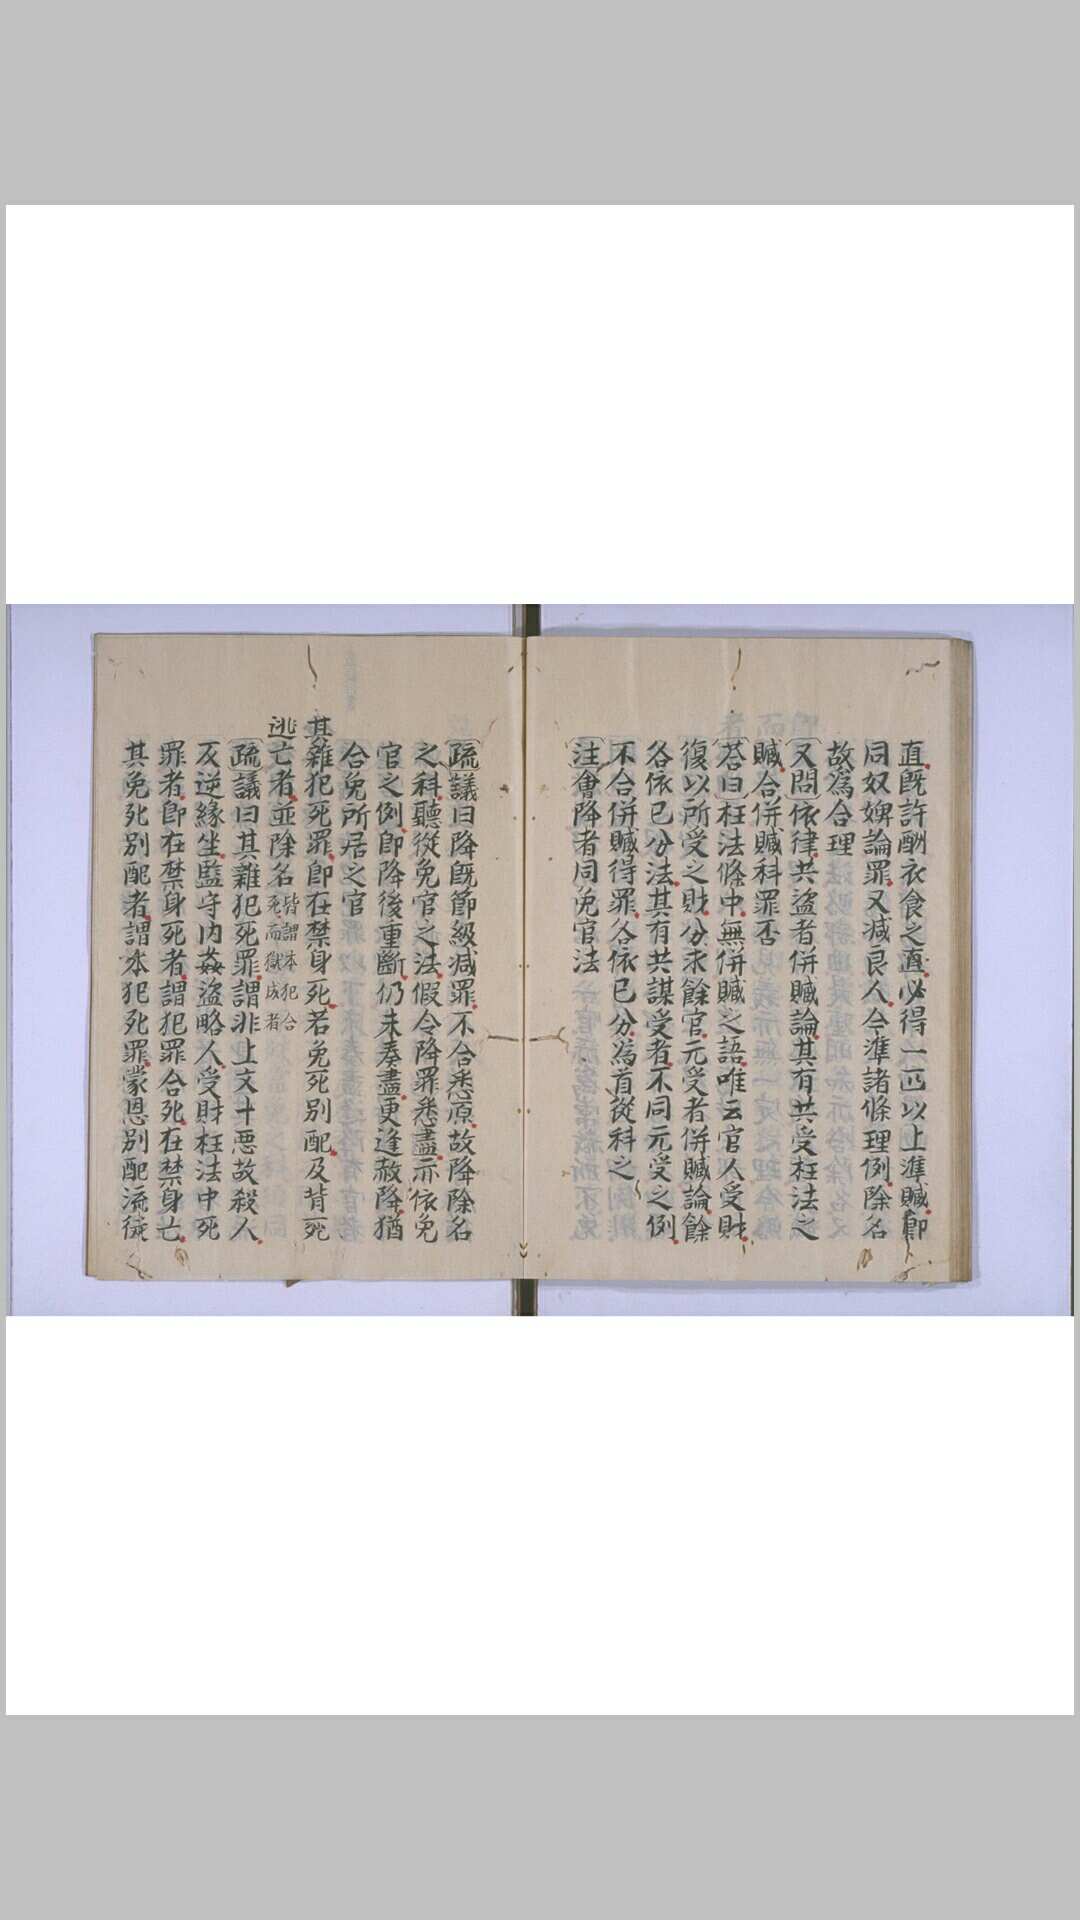 直既許酬衣食之直必得一匹以上準贓即
同奴婢論罪又減良人今準諸條理例除名
故為合理
又問依律共盜者併贓論其有共受枉法之
贓合併贓科罪否
荅曰枉法條中無併贓之語唯云官人受財
復以所受之財分求餘官元受者併贓論餘
各依已分法其有共謀受者不同元受之例
不合併贓得罪各依已分為首從科之
注會降者同免官法
疏議曰降既節級減罪不合悉原故降除名
之科聽從免官之法假令降罪悉盡亦依免
官之例即降後重斷仍未奏盡更逢赦降猶
合免所居之官
其雜犯死罪即在禁身死若免死別配及背死
逃亡者並除名皆謂本犯合死而獄成者
疏議曰其雜犯死罪謂非上文十惡故殺人
反逆緣坐監守內姦盜略人受財枉法中死
罪者即在禁身死者謂犯罪合死在禁身亡
其免死別配者謂本犯死罪蒙恩別配流徒